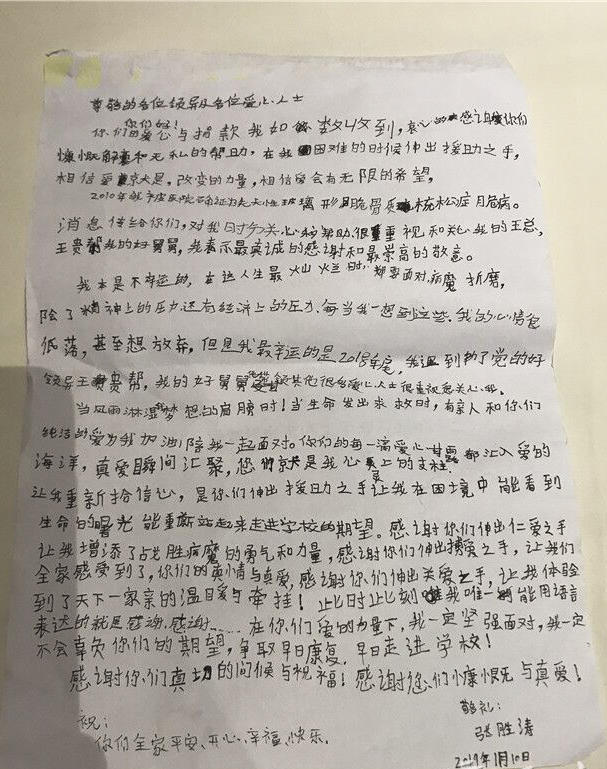 尊敬的各位领导及各位爱心人士
你们好！
你们的爱心与捐款我如数收到，衷心的感谢你们
慷慨解囊和无私的帮助，在我困难的时候伸出援助之手，
相信 改变的力量，相信爱会有无限的希望，
2010年 医院 为先天性 骨质 松症
消息传给你们，对我 关心和帮助，很重视和关心我的王总，
王贵帮我的好舅舅，我表示最真诚的感谢和最崇高的敬意。
我本是不幸运的，在这人生最 时 都要面对病魔折磨，
除了精神上的压力还有经济上的压力、每当我一想到这些、我的心情
低落，甚至想放弃，但是我最幸运的是2018年底，我遇到了党的好
领导王贵帮，我的好舅舅 其他很多爱心人士很重视和关心我。
当风雨淋湿我梦想的肩膀时！当生命发出求救时，有亲人和你们
纯洁的爱为我加油！陪我一起面对。你们的每一滴爱心甘露都汇入爱的
海洋，真爱瞬间汇聚，您们就是我心灵上的支柱！
让我重新拾信心，是你们伸出援助之手让我在困境中能看到
生命的曙光能重新站起来走进学校的期望。感谢你们伸出仁爱之手
让我增添了战胜病魔的勇气和力量，感谢你们伸出援爱之手，让我们
全家感受到了，你们的真情与真爱，感谢你们伸出关爱之手，让我体验
到了天下一家亲的温暖与牵挂！此时此刻 我唯一 能用语言
表达的就是感谢，感谢……在你们爱的力量下，我一定坚强面对，我一定
不会辜负你们的期望，争取早日康复，早日走进学校！
感谢你们真切的问候与祝福！感谢您们慷慨与真爱！
敬礼：
祝：
张胜涛
你们全家平安、开心、幸福、快乐。
2019年1月10日